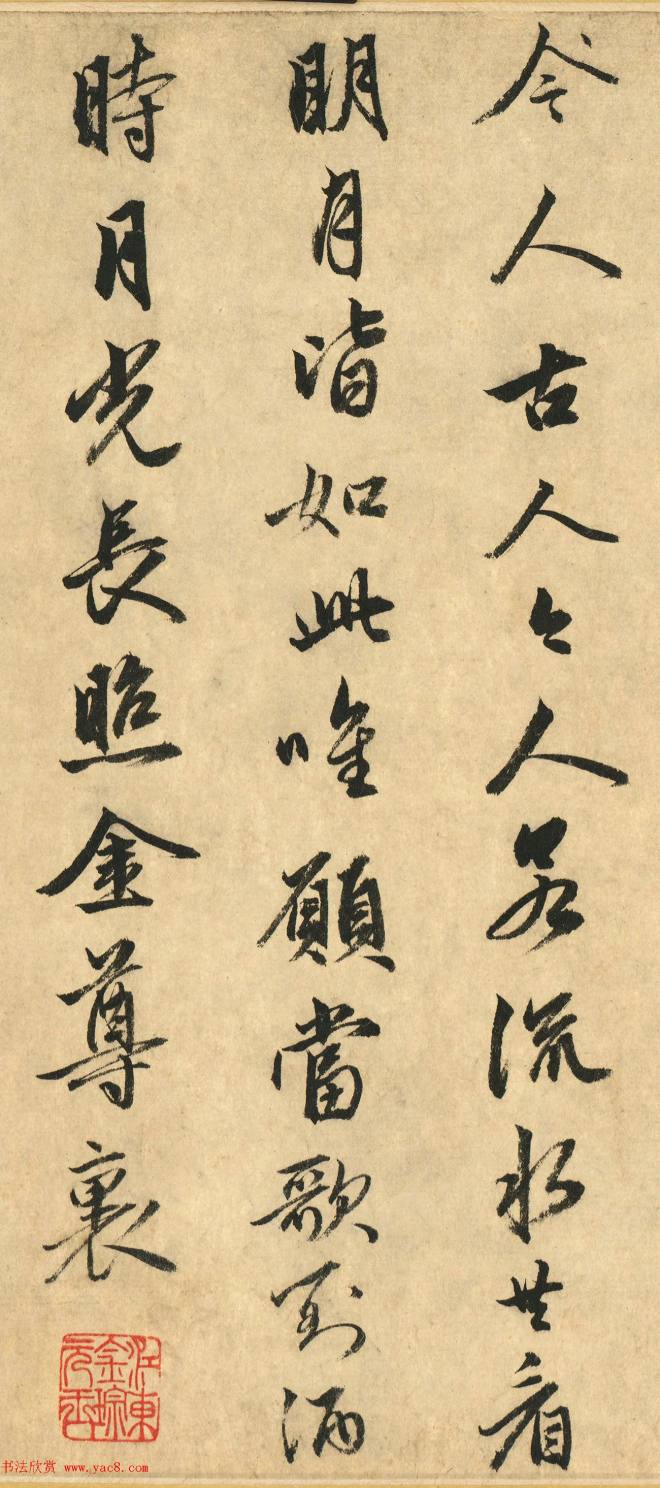 今人古人々人若流水共看
明月皆如此唯願當歌對酒
時月光長照金尊裏
江東
金琮
元玉
书法欣赏 www.yac8.com